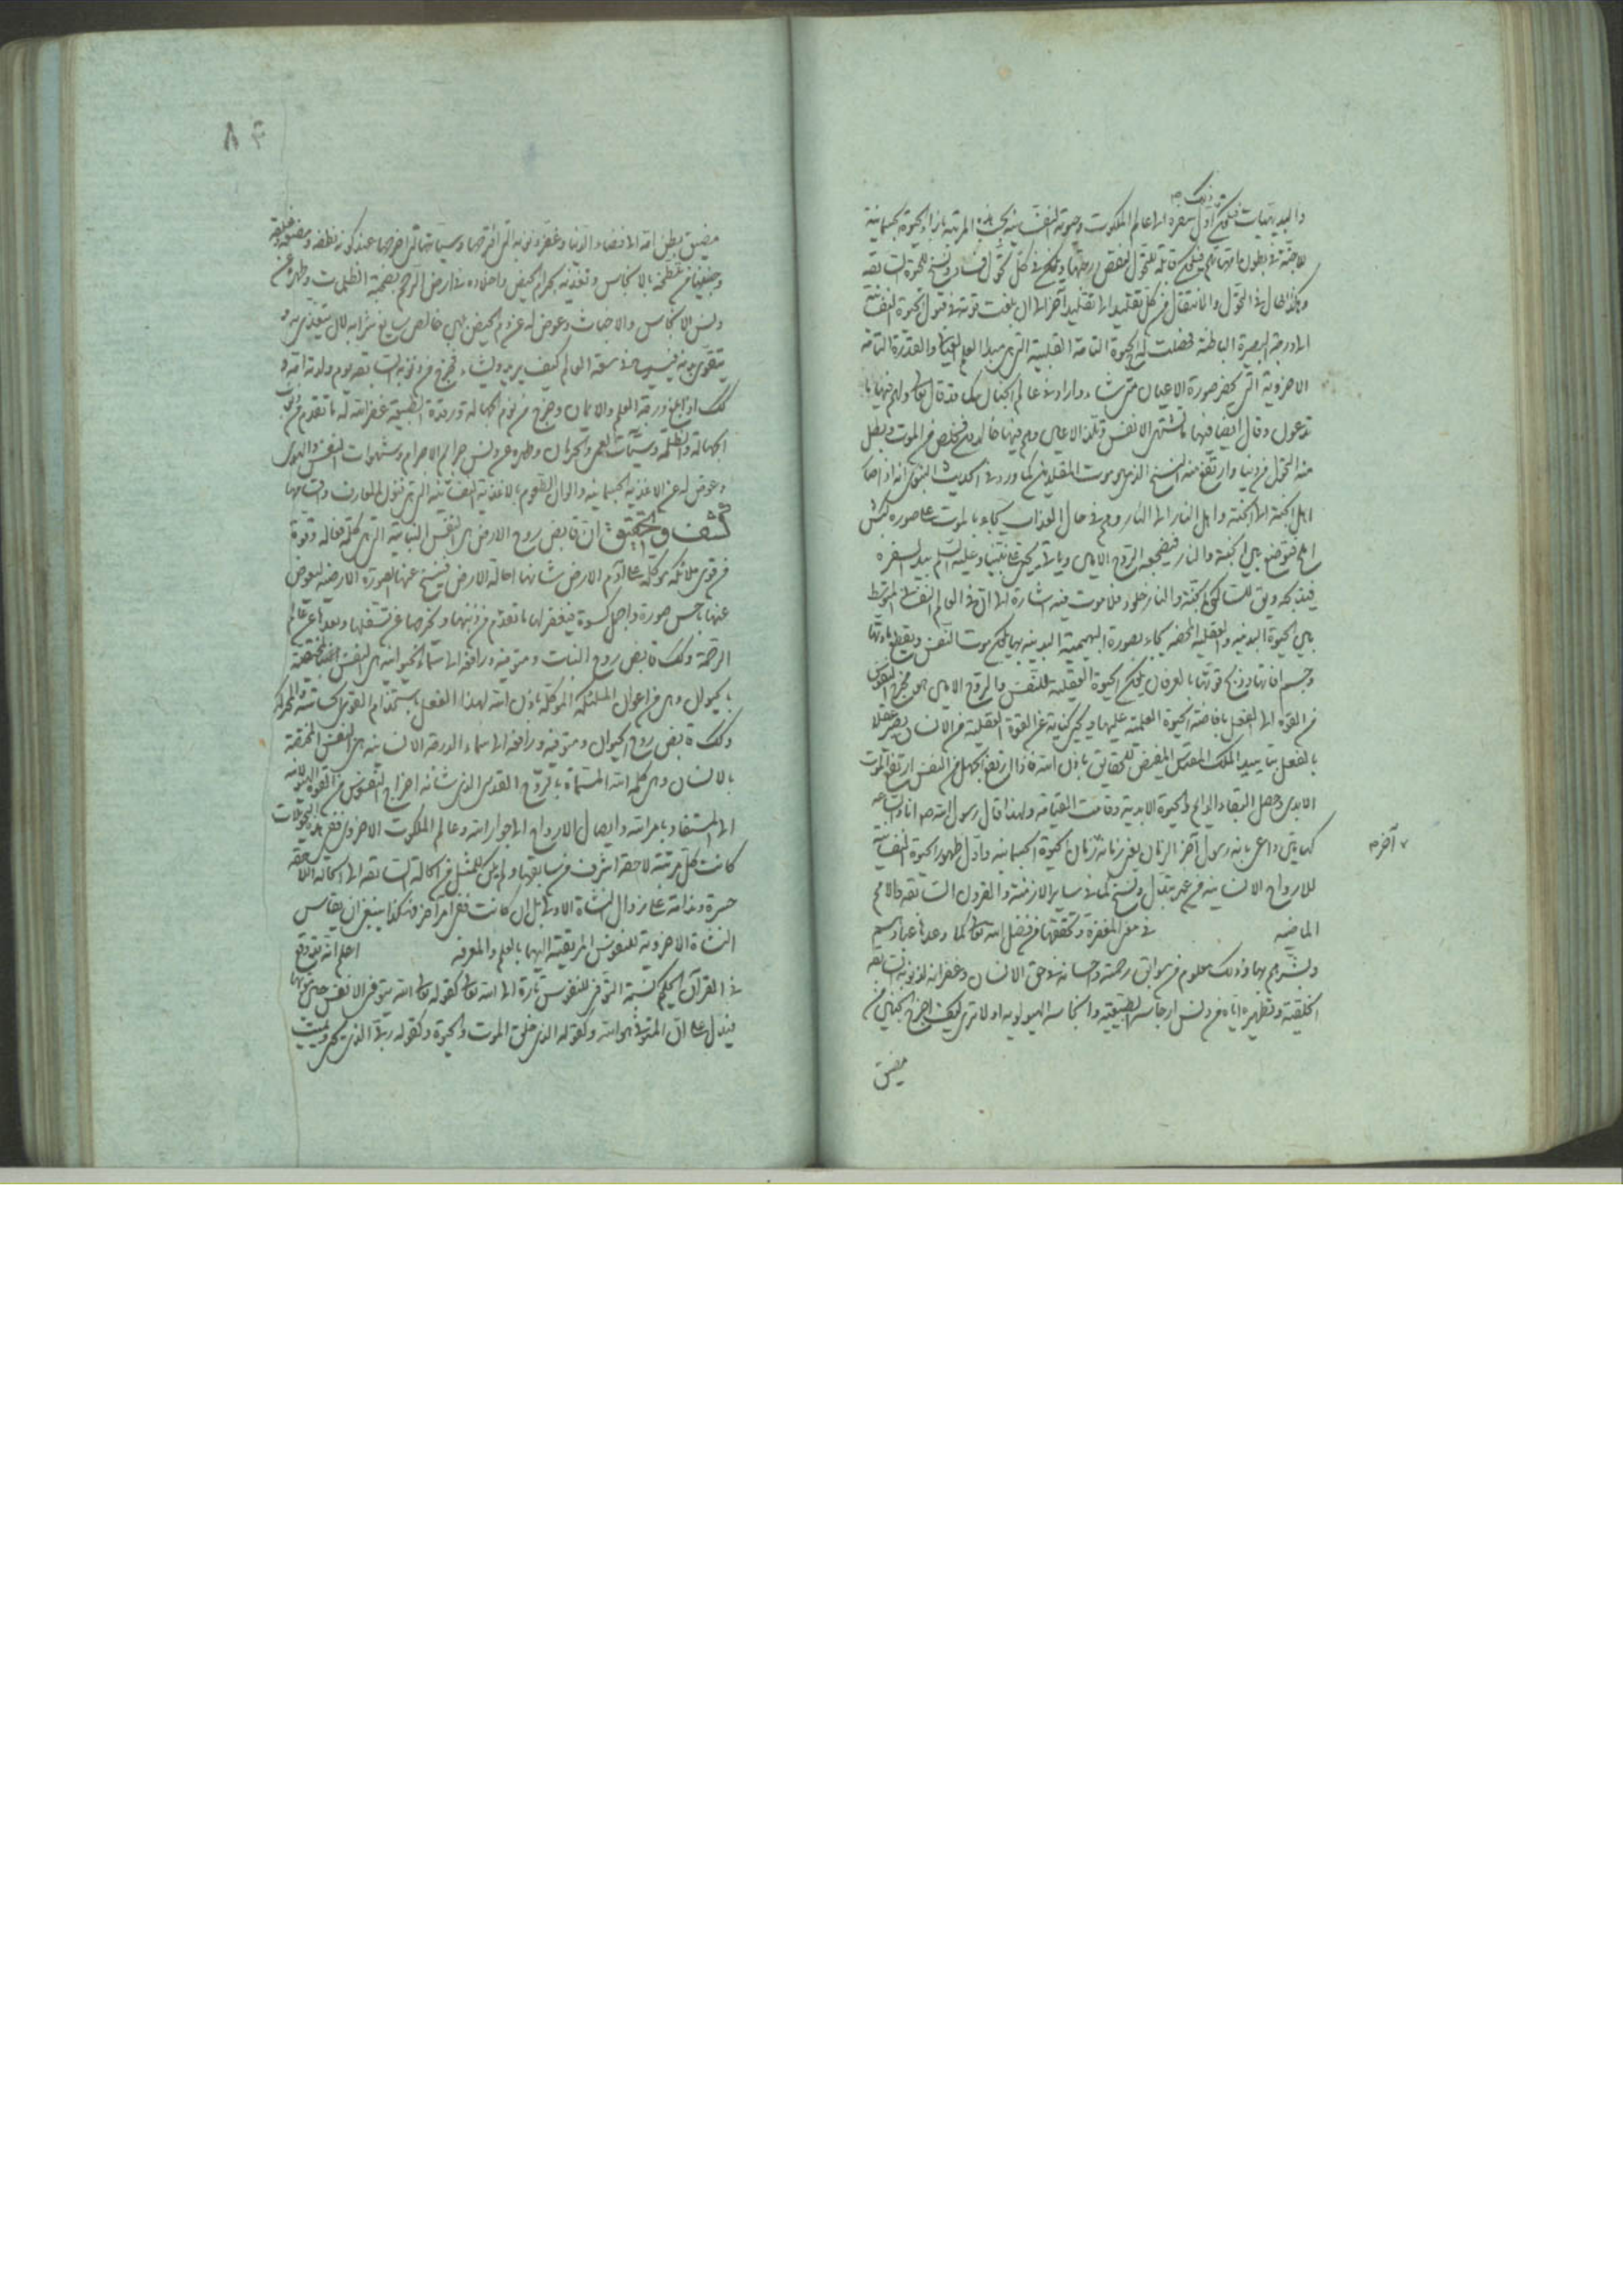 والبديهيات فيكون أول سفره الى عالم الملكوت وحيوته النفسانية بحسب هذه المرتبة بازاء الحيوة الجسمانية
للاجنة في بطون امهاتهم فيكون قابلة للتحول لنقص درجتها ويكون في كل تحول فساد ونسخ للحيوة السابقة
وهكذا الحال في التحول والانتقال من كل تقليد الى تقليد آخر الى ان بلغت قوته في قبول الحيوة النفسانية
الى درجة البصيرة الباطنة فحصلت له الحيوة التامة القلبية التي هي مبدأ العلم اليقيني والقدرة التامة
الاخروية التي تحضر صورة الاعيان متى شاء واراد في عالم الجنان كما قد قال تعالى ولهم فيها ما
تدعون وقال ايضا فيها ما تشتهي الانفس وتلذ الاعين وهم فيها خالدون فخلص من الموت وبطل
منه التحول من دنيا وارتفع منه النسخ الذي هو موت المقلدين كما ورد في الحديث النبوي انه اذا صار
اهل الجنة الى الجنة واهل النار الى النار وهم في حال العذاب يجاء بالموت على صورة كبش
املح فتوضع بين الجنة والنار فيضجعه الروح الامين ويأتي يحيى على نبينا وعليه السلم بيده الشفرة
فيذبحه ويق لساكني الجنة والنار خلود فلا موت فيه اشارة الى ان في العالم النفساني المتوسط
بين الحيوة البدنية والعقلية المحضة يجاء بصورة البهيمية البدنية بها يكون موت النفس ويقطع مادتها
وحسم آفاتها وذبح قوتها بالعرفان يكون الحيوة العقلية للنفس والروح الامين هو مخرج النفوس
من القوة الى الفعل بافاضة الحيوة العلمية عليها ويحيى كناية عن القوة العقلية من الانسان يصير عقلا
بالفعل بتأييد الملك المقدس المفيض للحقايق باذن الله فاذا ارتفع الجهل من النفس ارتفع الموت
الابدي وحصل البقاء الدائم والحيوة الابدية وقامت القيامة ولهذا قال رسول الله ص انا والساعة
كهاتين واعي بانه رسول آخر الزمان يعني زمانه زمان آخر الحيوة الجسمانية واول ظهور الحيوة النفسانية
للارواح الانسانية من غير تبدل ونسخ كما في ساير الازمنة والقرون السابقة والامم
الماضية في معنى المغفرة وتحققها من فضل الله تعالى كما وعدها عباده
وبشرهم بها وذلك معلوم من سوابق رحمته واحسانه في حق الانسان وغفرانه لذنوبه السابقة
الخلقية وتطهيره اياه من دنس ارجاسه الطبيعية وانجاسه الهيولوية اولا ترى كيف اخرج الجنين من
مضيق
آخر م
٨٤
مضيق بطن امه الى فضاء الدنيا وغفر ذنوبه التي اقترفها وسيئاته التي اخرها عند كونه نطفة ومضغة وعلقة
وجنينا من تلطخه بالانجاس وتغذيه بحرام الحيض واخلاده في ارض الرحم بصحبة الظلمات وطهره عن
دنس الانجاس والاخباث وعوض له عن دم الحيض بلبن خالص سايغ شرابه لان يتغذى به و
يتقوى بدنه فيسير في سعة العالم كيف يريد ويشاء فخرج من ذنوبه السابقة يوم ولدته امه و
كك اذا بلغ درجة العلم والايمان وخرج من نوم الجهالة ورقدة الطبيعة غفر الله له ما تقدم من ذنوب
الجهالة والظلمة وسيئات العمى والحرمان وطهره عن دنس جرايم الاجرام وشهوات النفس والهوى
وعوض له عن الاغذية الجسمانية والوان الطعوم بالاغذية النفسانية التي هي فنون المعارف واقسامها
كشف وتحقيق ان قابض روح الارض هي النفس النباتية التي هي كلمة فعالة وقوة
من قوى ملائكة موكلة على ادم الارض شانها احالة الارض فينسخ عنها الصورة الارضية ليعوض
عنها باحسن صورة واجمل كسوة فيغفر لها ما تقدم من ذنبها ويخرجها عن تسفلها وبعدها عن عالم
الرحمة وكك قابض روح النبات ومتوفيه ورافعه الى سماء الحيوانية هي النفس المختصة
بالحيوان وهي من اعوان الملئكة الموكلة باذن الله لهذا الفعل باستخدام القوى الحساسة والمحركة
وكك قابض روح الحيوان ومتوفيه ورافعه الى سماء الدرجة الانسانية هي النفس المختصة
بالانسان وهي كلمة الله المسماة بالروح القدس الذي شأنه اخراج النفوس من القوة الهيولانية
الى المستفاد بامر الله وايصال الارواح الى جوار الله وعالم الملكوت الاخروي ففي هذه التحولات
كانت كل مرتبة لاحقة اشرف من سابقها ولم يكن للمنتقل من الحالة السابقة الى الحالة اللاحقة
حسرة وندامة على زوال النشاة الاولى بل ان كانت فمن امر آخر وهكذا ينبغي ان يقاس
النشاة الاخروية للنفوس المرتقية اليها بالعلم والمعرفة اعلم انه قد وقع
في القرآن الحكيم نسبة التوفي للنفوس تارة الى الله تعالى كقوله تعالى الله يتوفى الانفس حين موتها
فيدل على ان المتوفي هو الله وكقوله الذي خلق الموت والحيوة وكقوله ربي الذي يحيي ويميت